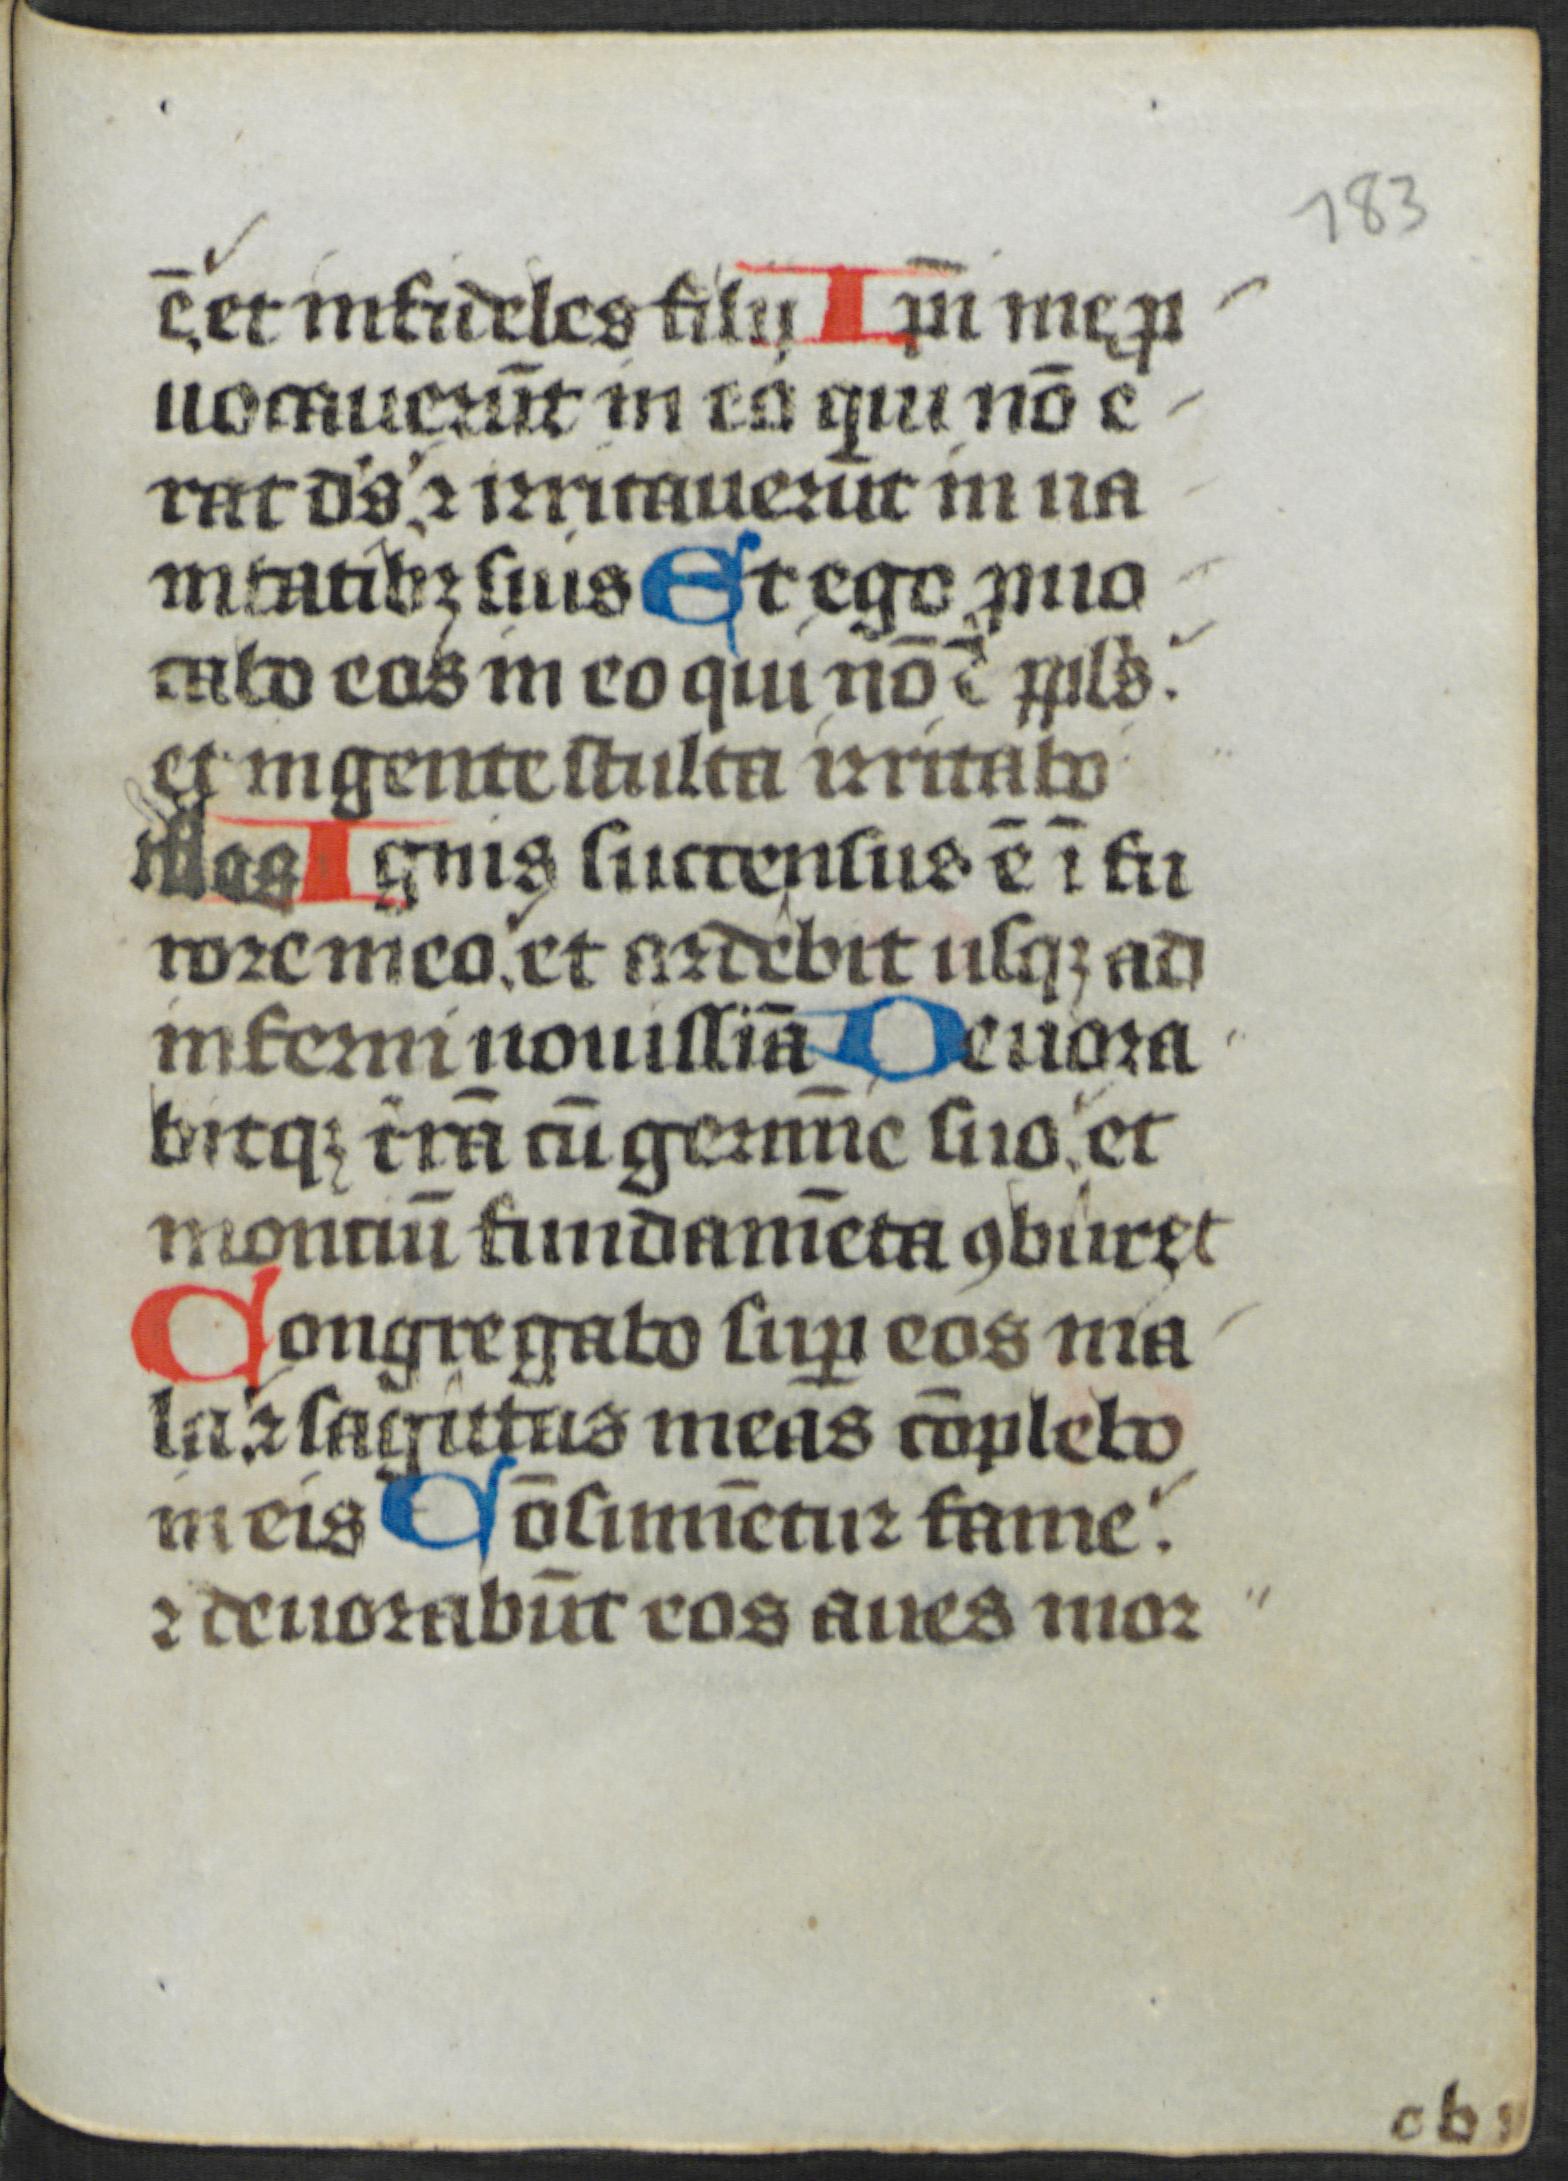 183
ē. et infideles filij Ip̄i me ꝓ
uocauerūt in eo qui nō e
rat d's. ⁊ irritauerūt in ua
nitatibꝫ suis Et ego ꝓuo
cabo eos in eo qui nō ē ppl's.
et in gente stulta irritabo
illos Ignis succensus ē ī fu
rore meo. et ardebit usqꝫ ad
inferni nouissīa Deuora
bitqꝫ t̄rā cū germīe suo. et
montiū fundamēta ꝯburet
Congregabo suꝑ eos ma
la. ⁊ sagittas meās cōplebo
in eis Cōsumētur fame.
⁊ deuorabūt eos aues mor
c b